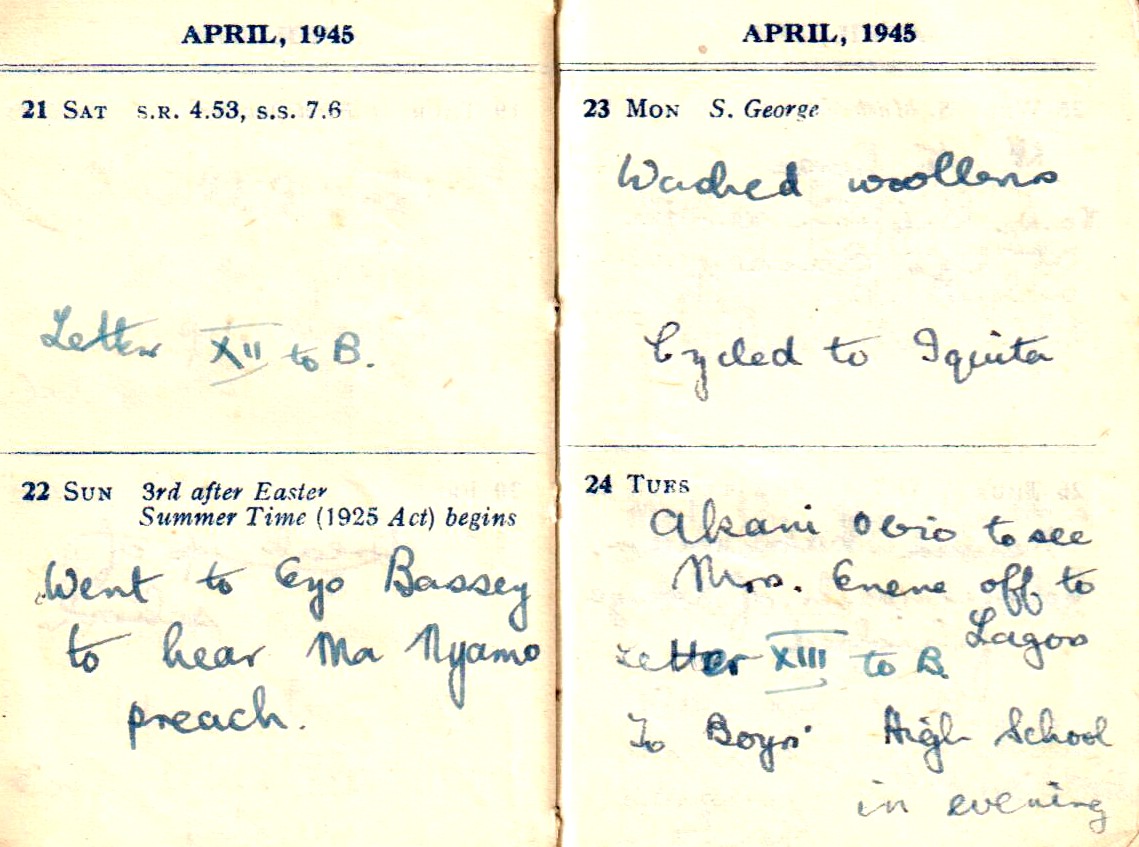 APRIL, 1945
21 SAT S.R. 4.53, S.S. 7.6
Letter XII to B.
22 SUN 3rd after Easter
Summer Time (1925 Act) begins
Went to Eyo Bassey
to hear Ma Nyamo
preach.
APRIL, 1945
23 MON S. George
Washed woollens
Cycled to Iquita
24 TUES
Akani Obio to see
Mrs. Enene off to
Lagos
Letter XIII to B.
To Boys' High School
in evening